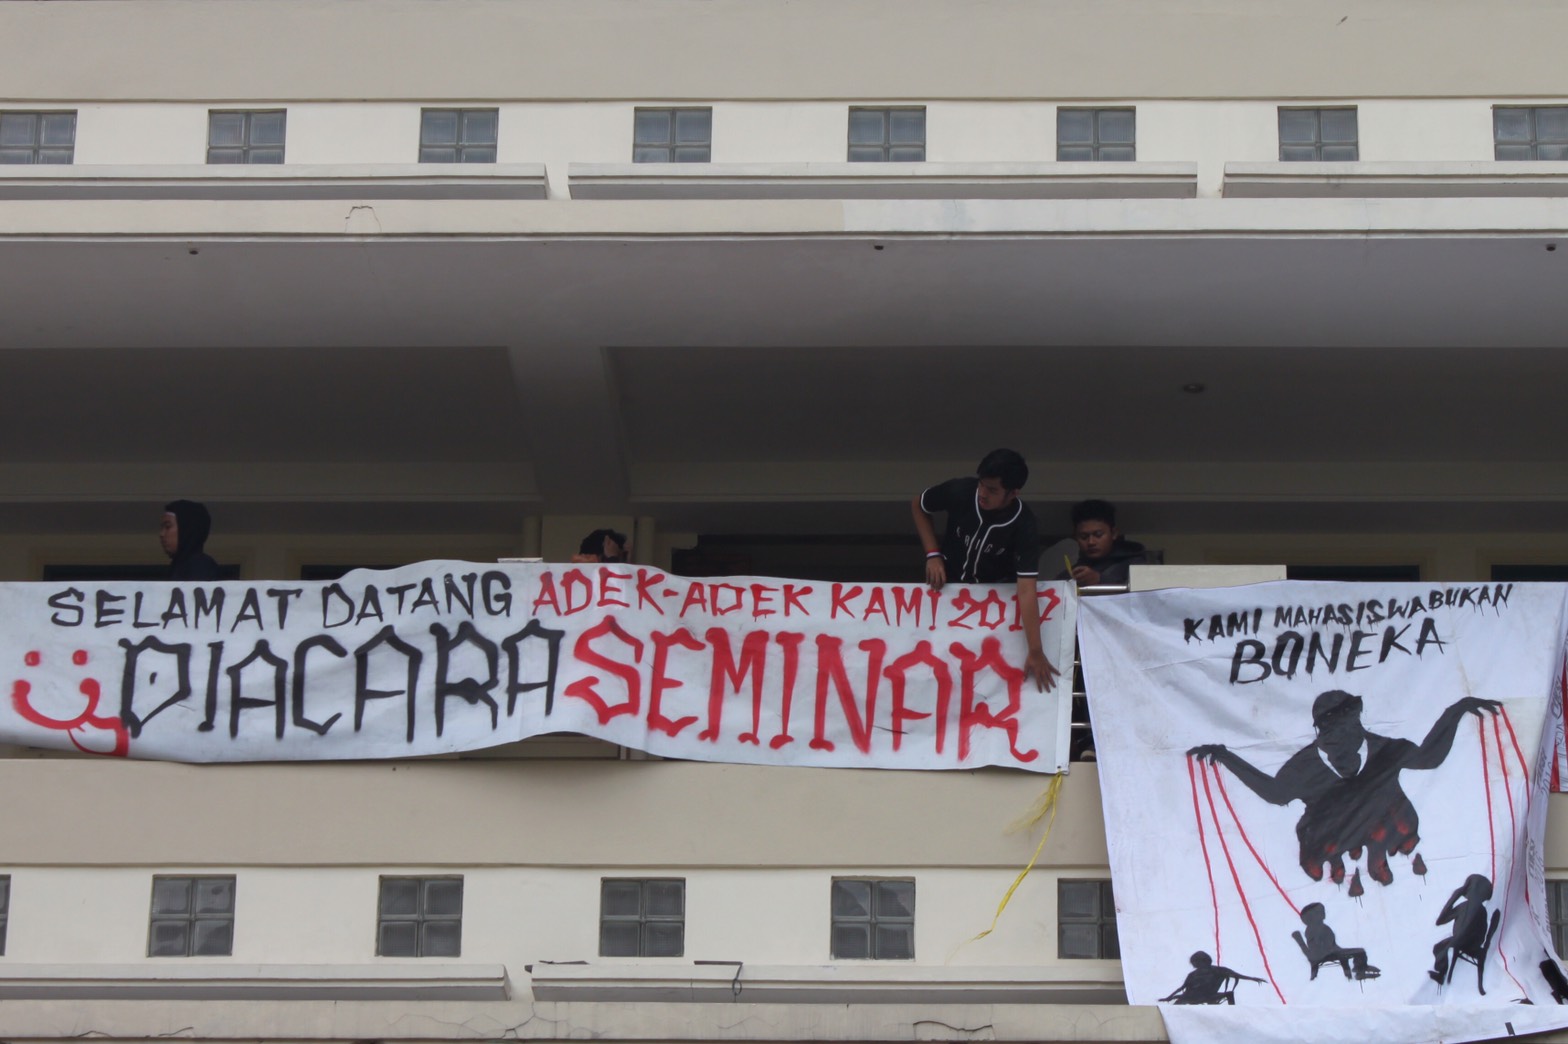 SELAMAT DATANG ADEK-ADEK KAMI 2017
DIACARA SEMINAR
KAMI MAHASISWA BUKAN
BONEKA